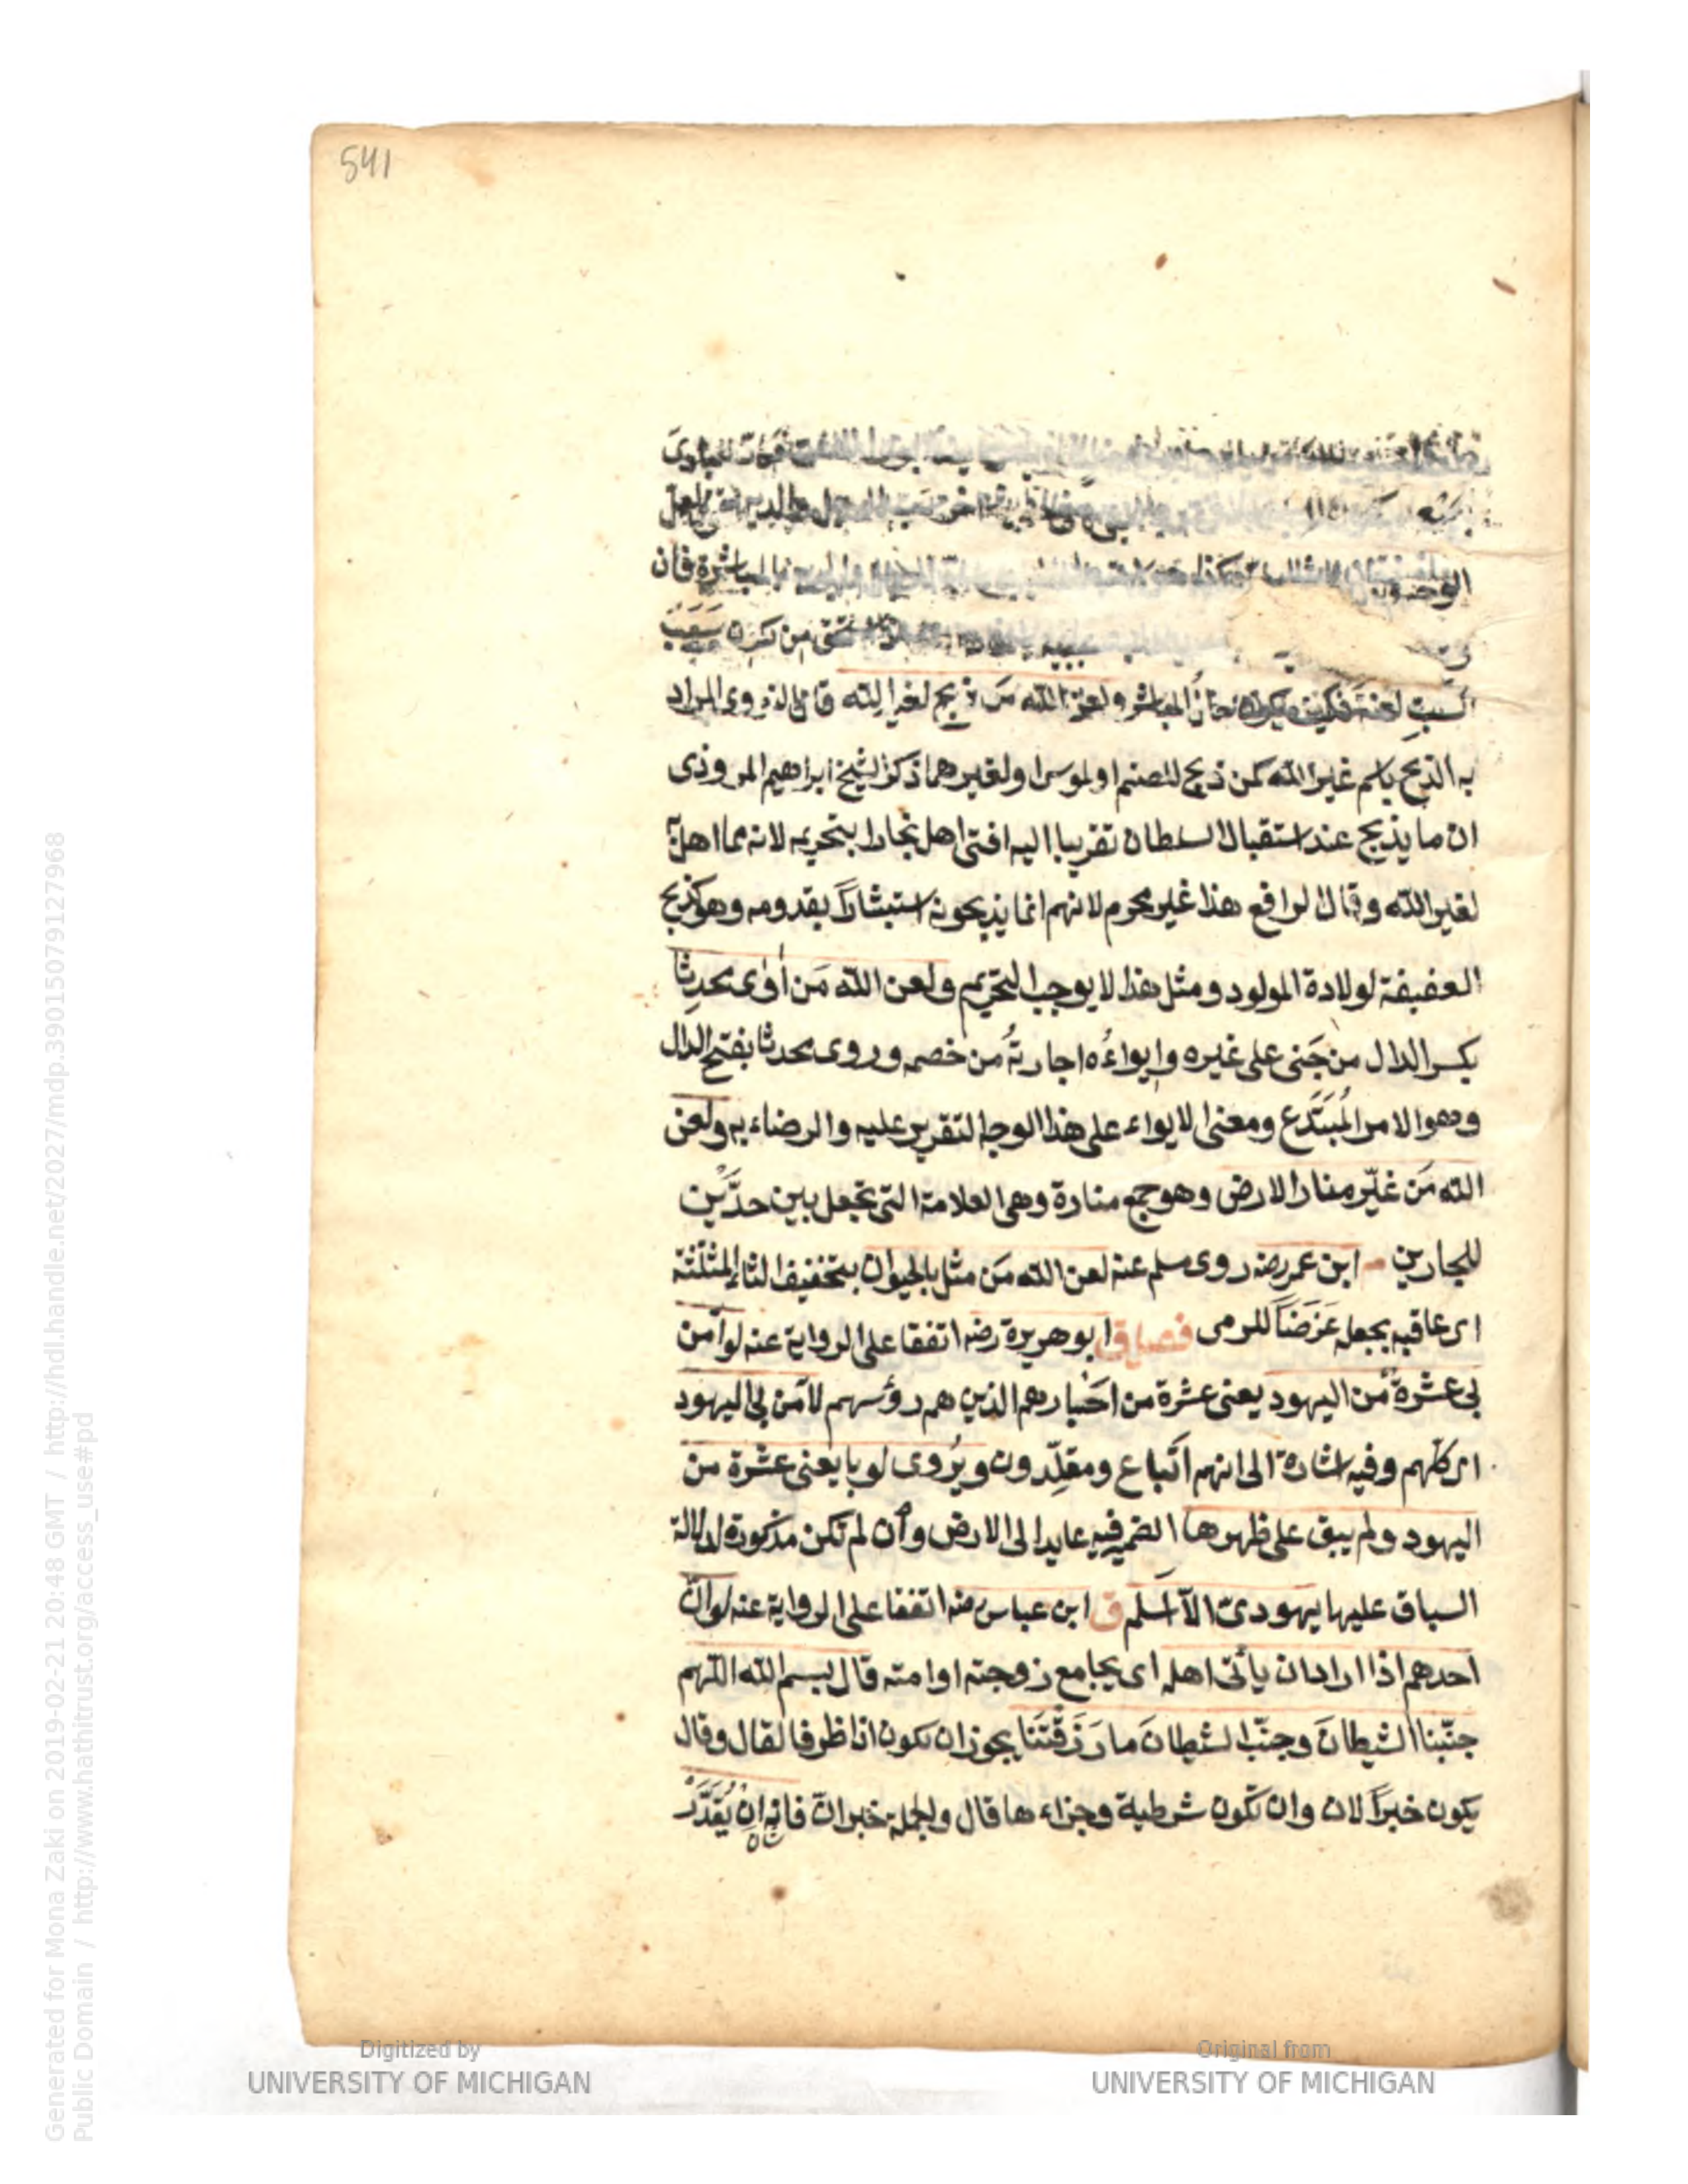 541
المباشرة فان
من نكره سبب
السب لعنة فكيف يكون حال المباشر ولعن الله من ذبح لغير الله قال النووى المراد
به الذبح باسم غير الله كمن ذبح للصنم او لموسى او لغيرهما ذكر الشيخ ابراهيم المروذى
ان ما يذبح عند استقبال السلطان تقربا اليه افتى اهل بخارا بتحريمه لانه مما اهل به
لغير الله وقال الرافع هذا غير محرم لانهم انما يذبحونه استبشارًا بقدومه وهو كذبح
العقيقة لولادة المولود ومثل هذا لا يوجب التحريم ولعن الله مَن أوٰى محدِثا
بكسر الدال من جَنى على غيره وايواءُه اجارتهُ من خصمه وروى محدثا بفتح الدال
وهو الامر المُبتَدَع ومعنى الايواء على هذا الوجه التقرير عليه والرضاء به ولعن
الله مَن غيّر منار الارض وهو جمع منارة وهى العلامة التى تجعل بين حدَّين
للجارين ابن عمر رضه روى مسلم عنه لعن الله مَن مثل بالحيوان بتخفيف الثاء المثلثة
اى عاقبه بجعله غَرَضًا للرمى فصل ق ابو هريرة رضه اتفقا على الرواية عنه لو آمن
بى عشرةٌ من اليهود يعنى عشرة من احبارهم الذين هم رؤسهم لآمن بى اليهود
اى كلهم وفيه اشارة الى انهم اَتباع ومقلِّدون ويُروى لو بايعنى عشرة من
اليهود ولم يبق على ظهرها الضمير فيه عايد الى الارض وان لم تكن مذكورة لدلالة
السياق عليها يهودىّ الا اسلم ق ابن عباس رضه اتفقا على الرواية عنه لو انّ
احدهم اذا اراد ان يأتى اهله اى يجامع زوجته او امته قال بسم الله اللهم
جنّبنا الشيطانَ وجنّب الشيطانَ ما رَزَقْتَنا يجوز ان تكون اذا ظرفا لقال وقال
يكون خبرًا لان وان تكون شرطية وجزاءها قال والجملة خبر انّ فانه اِنْ يُقَدَّرْ
Digitized by
UNIVERSITY OF MICHIGAN
Original from
UNIVERSITY OF MICHIGAN
Generated for Mona Zaki on 2019-02-21 20:48 GMT / http://hdl.handle.net/2027/mdp.39015079127968
Public Domain / http://www.hathitrust.org/access_use#pd